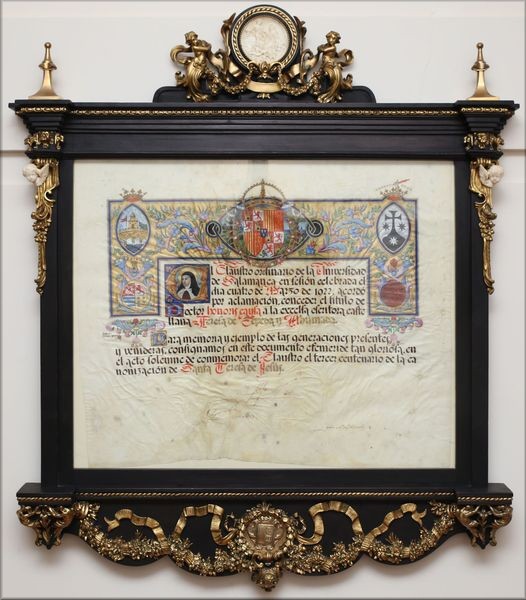 El Claustro ordinario de la Universidad
de Salamanca en sesión celebrada el
día cuatro de Marzo de 1922, acordó
por aclamación, conceder el título de
Doctor honoris causa a la excelsa escritora caste
llana, Teresa de Cepeda y Ahumada.
Para memoria y ejemplo de las generaciones presentes,
y venideras, consignamos en este documento efemeride tan gloriosa, en
el acto solemne de conmemorar el Claustro el tercer centenario de la ca
nonización de Santa Teresa de Jesús.